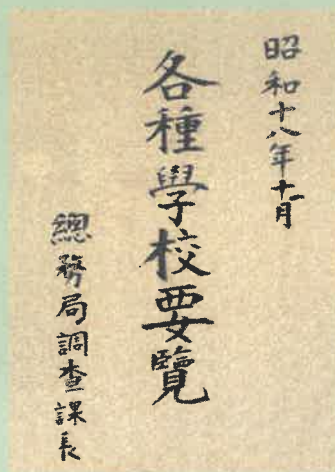 昭和十八年十一月
各種學校要覽
總務局調查課長